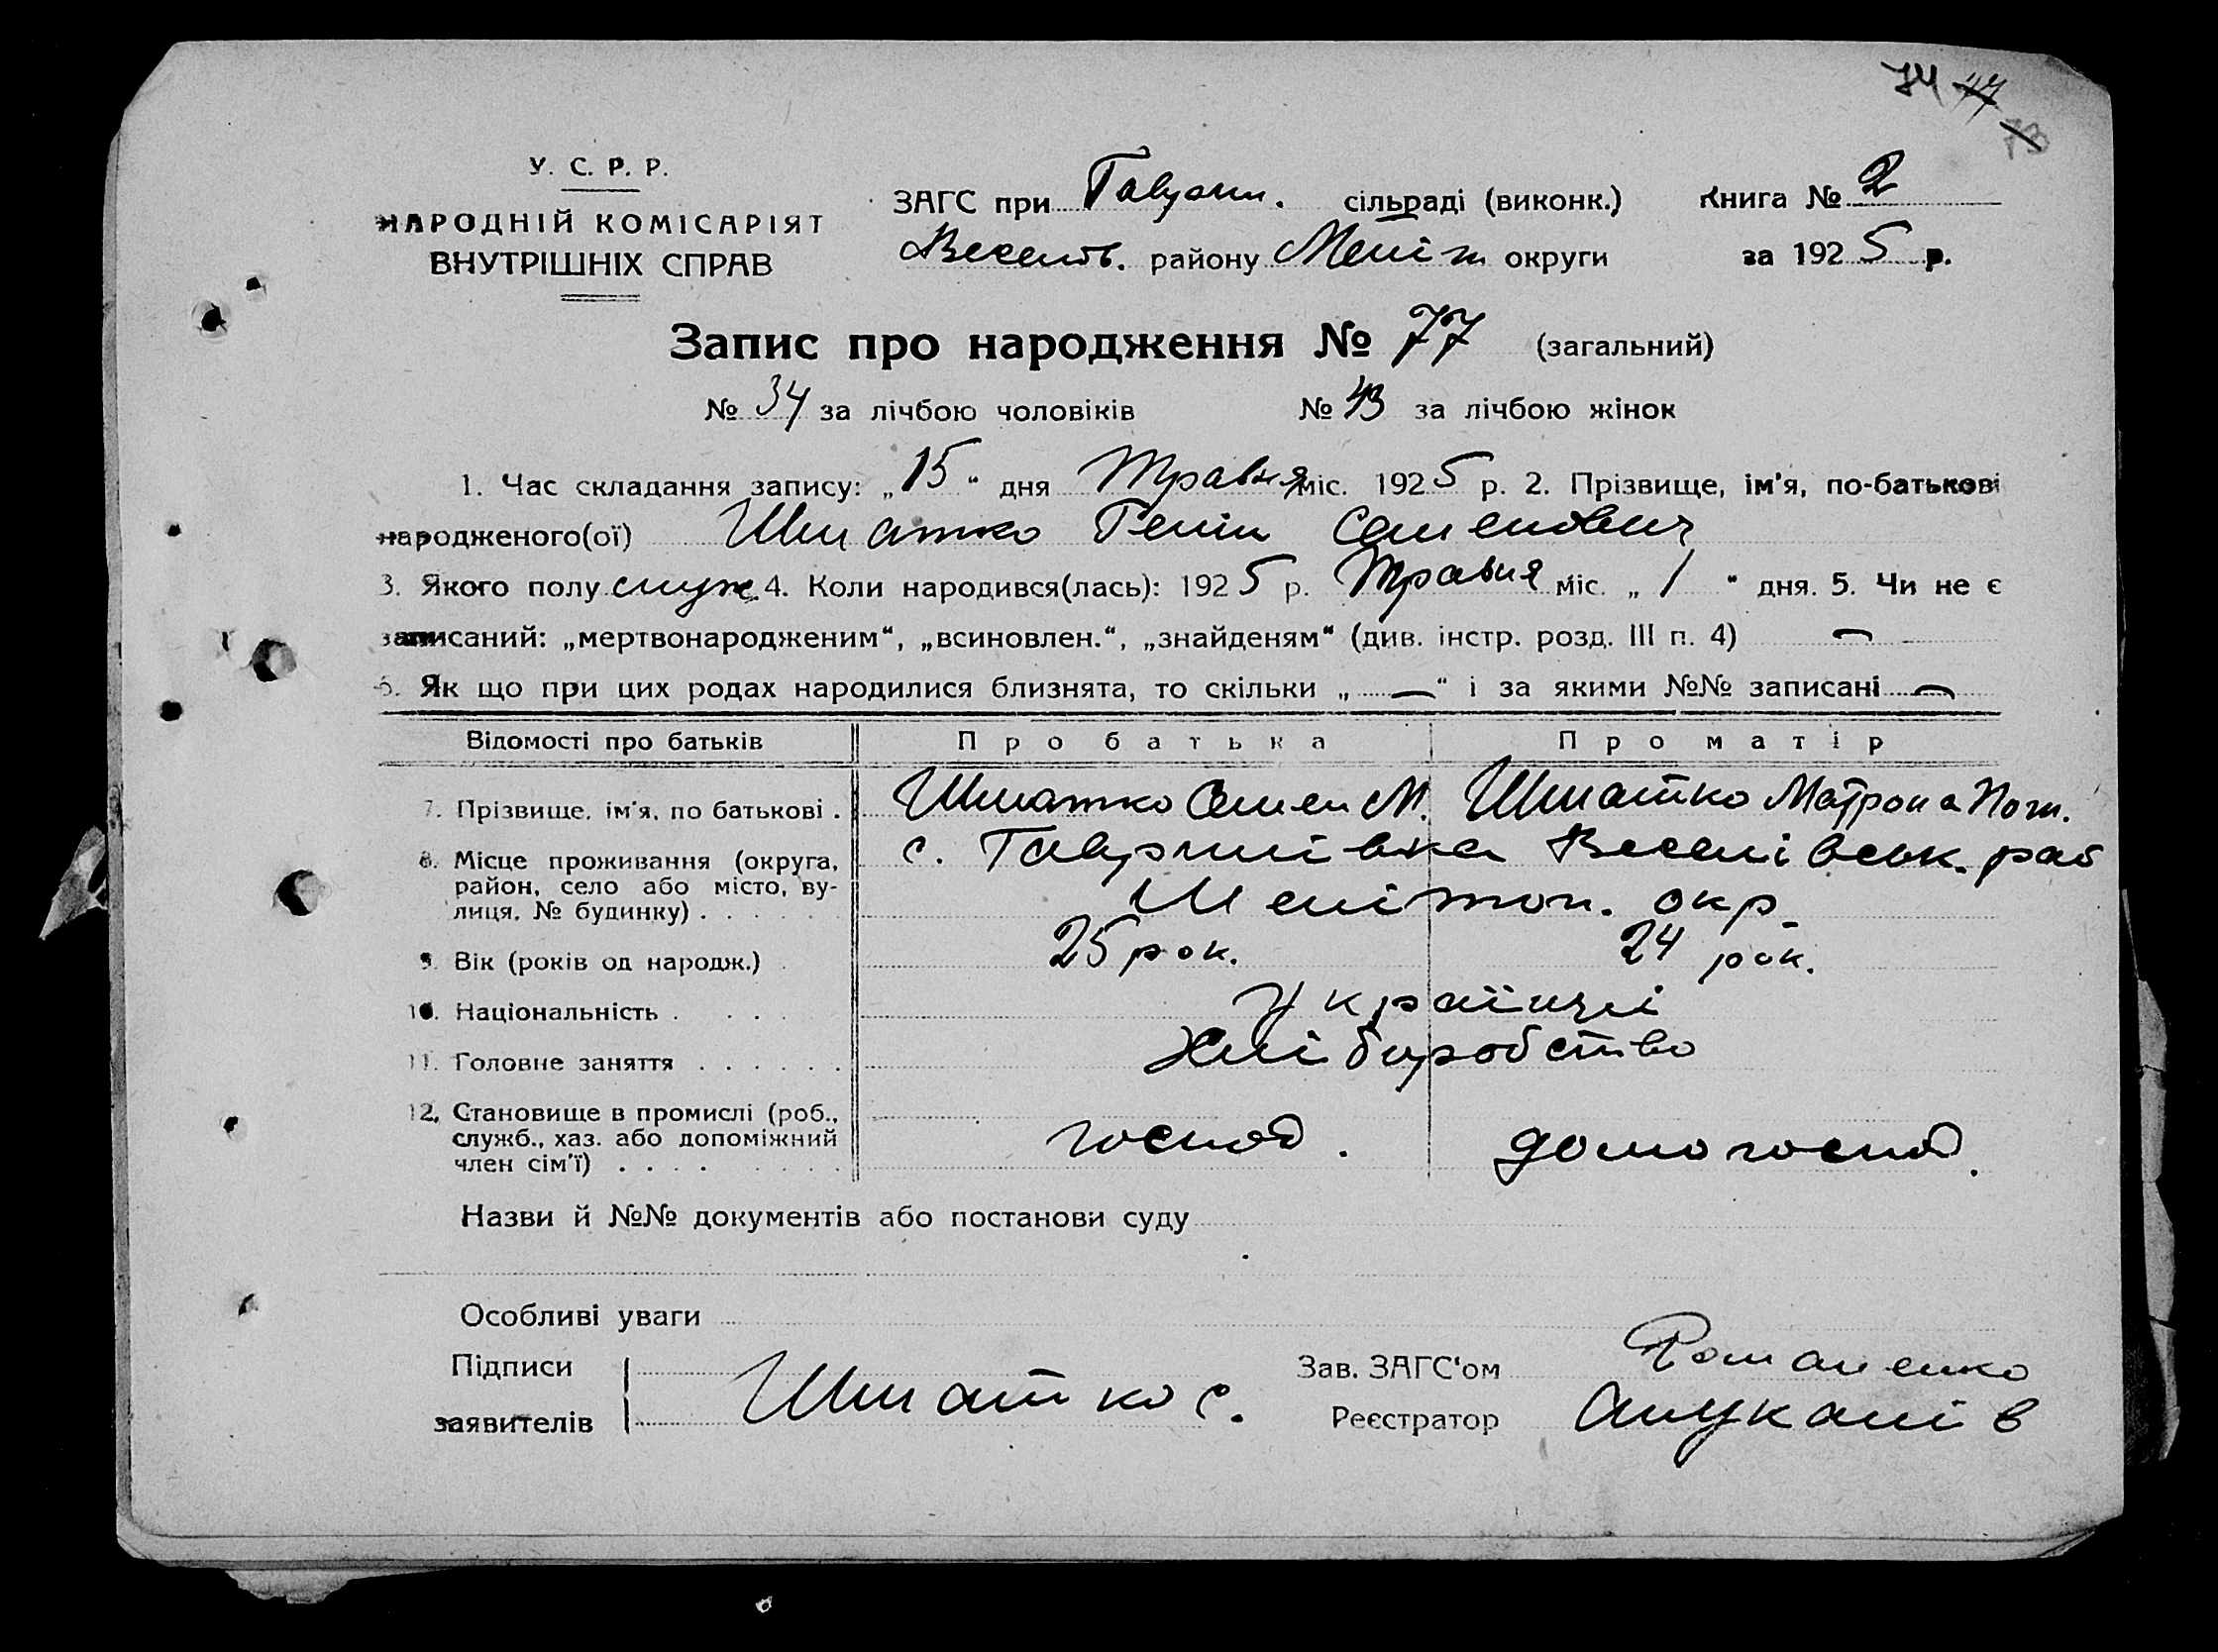 74
У. С. Р. Р.
НАРОДНІЙ КОМІСАРІЯТ
ВНУТРІШНІХ СПРАВ
ЗАГС при сільраді (виконк.) Книга № 2
району округи за 1925 р.
Запис про народження № 77 (загальний)
№ 34 за лічбою чоловіків № 43 за лічбою жінок
1. Час складання запису: „15“ дня Травня міс. 1925 р. 2. Прізвище, ім'я, по-батькові
народженого(ої) Шматко Семенович
3. Якого полу 4. Коли народився(лась): 1925 р. Травня міс. „1“ дня. 5. Чи не є
записаний: „мертвонародженим“, „всиновлен.“, „знайденям“ (див. інстр. розд. III п. 4) —
6. Як що при цих родах народилися близнята, то скільки „—“ і за якими №№ записані —
Відомості про батьків Про батька Про матір
7. Прізвище, ім'я, по батькові . Шматко Семен М. Шматко Матрона
8. Місце проживання (округа, район, село або місто, вулиця, № будинку) . . . . с. Гаврилівка Веселівськ. рай
Мелітоп. окр.
9. Вік (років од народж.) . 25 рок. 24 рок.
10. Національність . . . . Українці
11. Головне заняття . . . . . . Хліборобство
12. Становище в промислі (роб., служб., хаз. або допоміжний член сім'ї) . . . . господ. домогоспод.
Назви й №№ документів або постанови суду
Особливі уваги
Підписи заявителів Шматко С.
Зав. ЗАГС'ом Романенко
Реєстратор